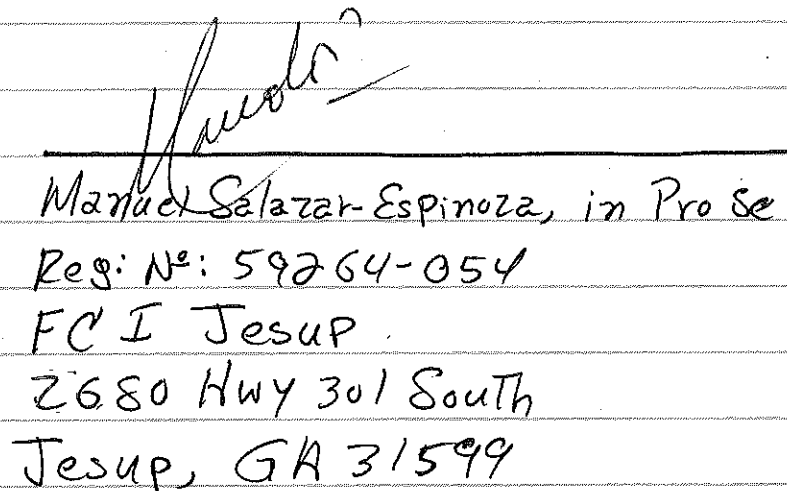 Manuel Salazar-Espinoza, in Pro se
Reg: Nº: 59264-054
FC I Jesup
2680 Hwy 301 South
Jesup, GA 31599